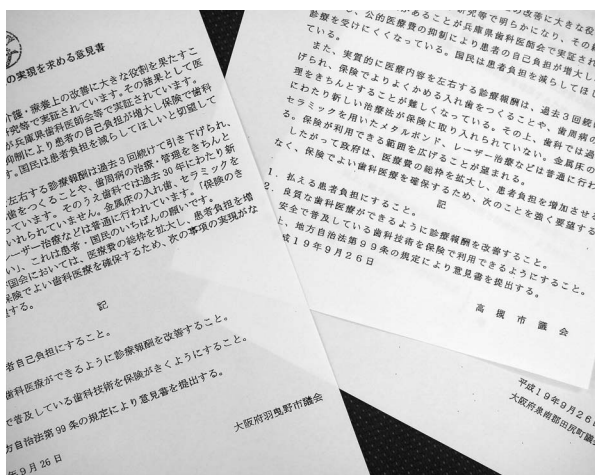 の実現を求める意見書
介護・療養上の改善に大きな役割を果たすこ
究等で実証されています。その結果として医
が兵庫県歯科医師会等で実証されています。
抑制により患者の自己負担が増大し保険で歯科
す。国民は患者負担を減らしてほしいと切望して
左右する診療報酬は過去3回続けて引き下げられ、
歯をつくることや、歯周病の治療、管理をきちんと
っています。そのうえ歯科では過去30年にわたり新
いれられていません。金属床の入れ歯、セラミックを
レーザー治療などは普通に行われています。「保険のき
い」、これは患者・国民のいちばんの願いです。
国会においては、医療費の総枠を拡大し、患者負担を増
保険でよい歯科医療を確保するため、次の事項の実現がな
する。
記
者自己負担にすること。
歯科医療ができるように診療報酬を改善すること。
で普及している歯科技術を保険がきくようにすること。
方自治法第99条の規定により意見書を提出する。
年9月26日
大阪府羽曳野市議会
の改善に大きな役
究等で明らかになり、その結
があることが兵庫県歯科医師会で実証され
し、公的医療費の抑制により患者の自己負担が増大し
診療を受けにくくなっている。国民は患者負担を減らしてほし
ている。
また、実質的に医療内容を左右する診療報酬は、過去3回続
げられ、保険でよりよくかめる入れ歯をつくることや、歯周病の
理をきちんとすることが難しくなっている。その上、歯科では過
にわたり新しい治療法が保険に取り入れられていない。金属床の
セラミックを用いたメタルボンド、レーザー治療などは普通に行わ
る。保険が利用できる範囲を広げることが望まれる。
したがって政府は、医療費の総枠を拡大し、患者負担を増加させる
なく、保険でよい歯科医療を確保するため、次のことを強く要望する
記
1. 払える患者負担にすること。
2. 良質な歯科医療ができるように診療報酬を改善すること。
安全で普及している歯科技術を保険で利用できるようにすること。
上、地方自治法第99条の規定により意見書を提出する。
成19年9月26日
高槻市議会
平成19年9月26日
大阪府泉南郡田尻町議会